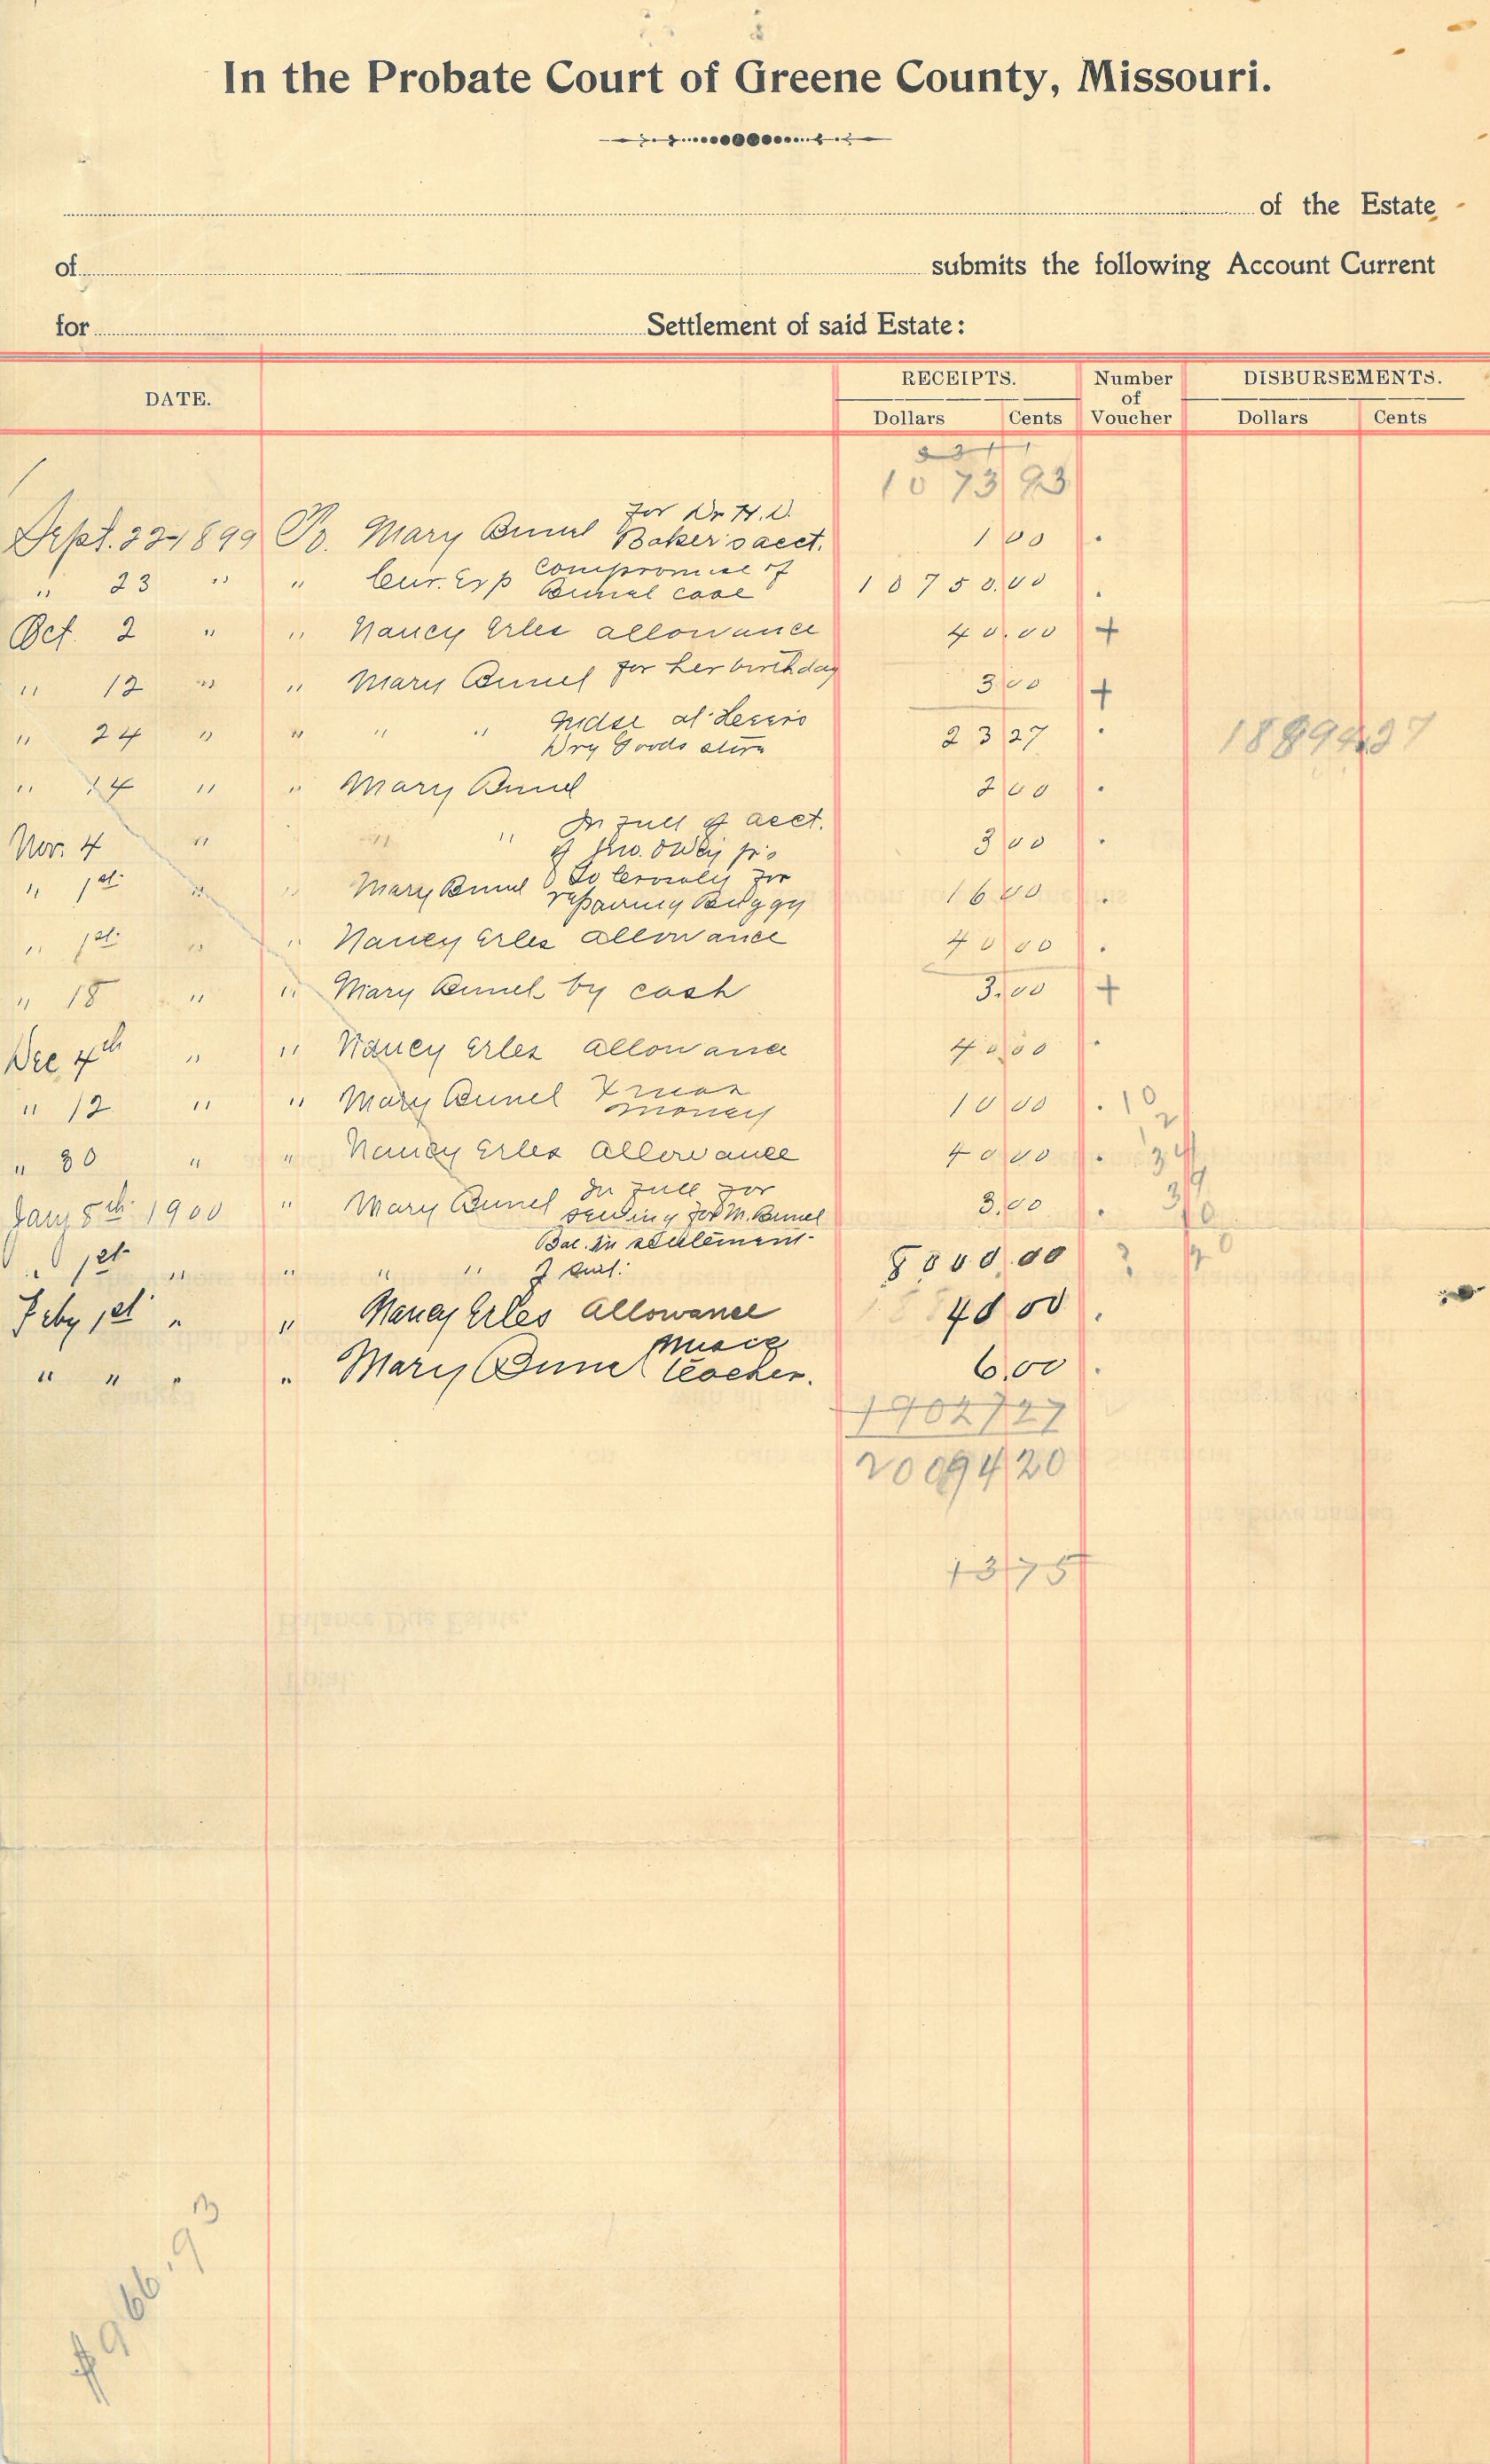 In the Probate Court of Greene County, Missouri.
of the Estate
of submits the following Account Current
for Settlement of said Estate:
DATE. RECEIPTS. Number of Voucher DISBURSEMENTS.
Dollars Cents Dollars Cents
1073 93
Sept. 22-1899 To. Mary Bunel for Dr H.D. Baker's acct. 1 00 .
" 23 " " Cur. Exp Compromise of Bunel case 10750.00 .
Oct. 2 " " Nancy Erles allowance 40.00 +
" 12 " " Mary Bunel for her birthday 3 00 +
" 24 " " " " Mdse at Dry Goods store 23 27 . 18894.27
" 14 " " Mary Bunel 2 00 .
Nov. 4 " " " In full of acct. of Jno. 3 00 .
" 1st " " Mary Bunel to for repairing Buggy 16 00 .
" 1st " " Nancy Erles allowance 40 00 .
" 18 " " Mary Bunel by cash 3.00 +
Dec 4th " " Nancy Erles allowance 40.00 .
" 12 " " Mary Bunel Xmas money 10 00 . 10
2
" 30 " " Nancy Erles allowance 40 00 . 34
Jany 8th 1900 " Mary Bunel In full for sewing for M. Bunel 3.00 .
" 1st " " " " Bal. in settlement of suit. 8000.00 ?
Feby 1st " " Nancy Erles allowance 40 00 .
" " " " Mary Bunel Music teacher. 6.00 .
19027 27
20094 20
13 75
$966.93